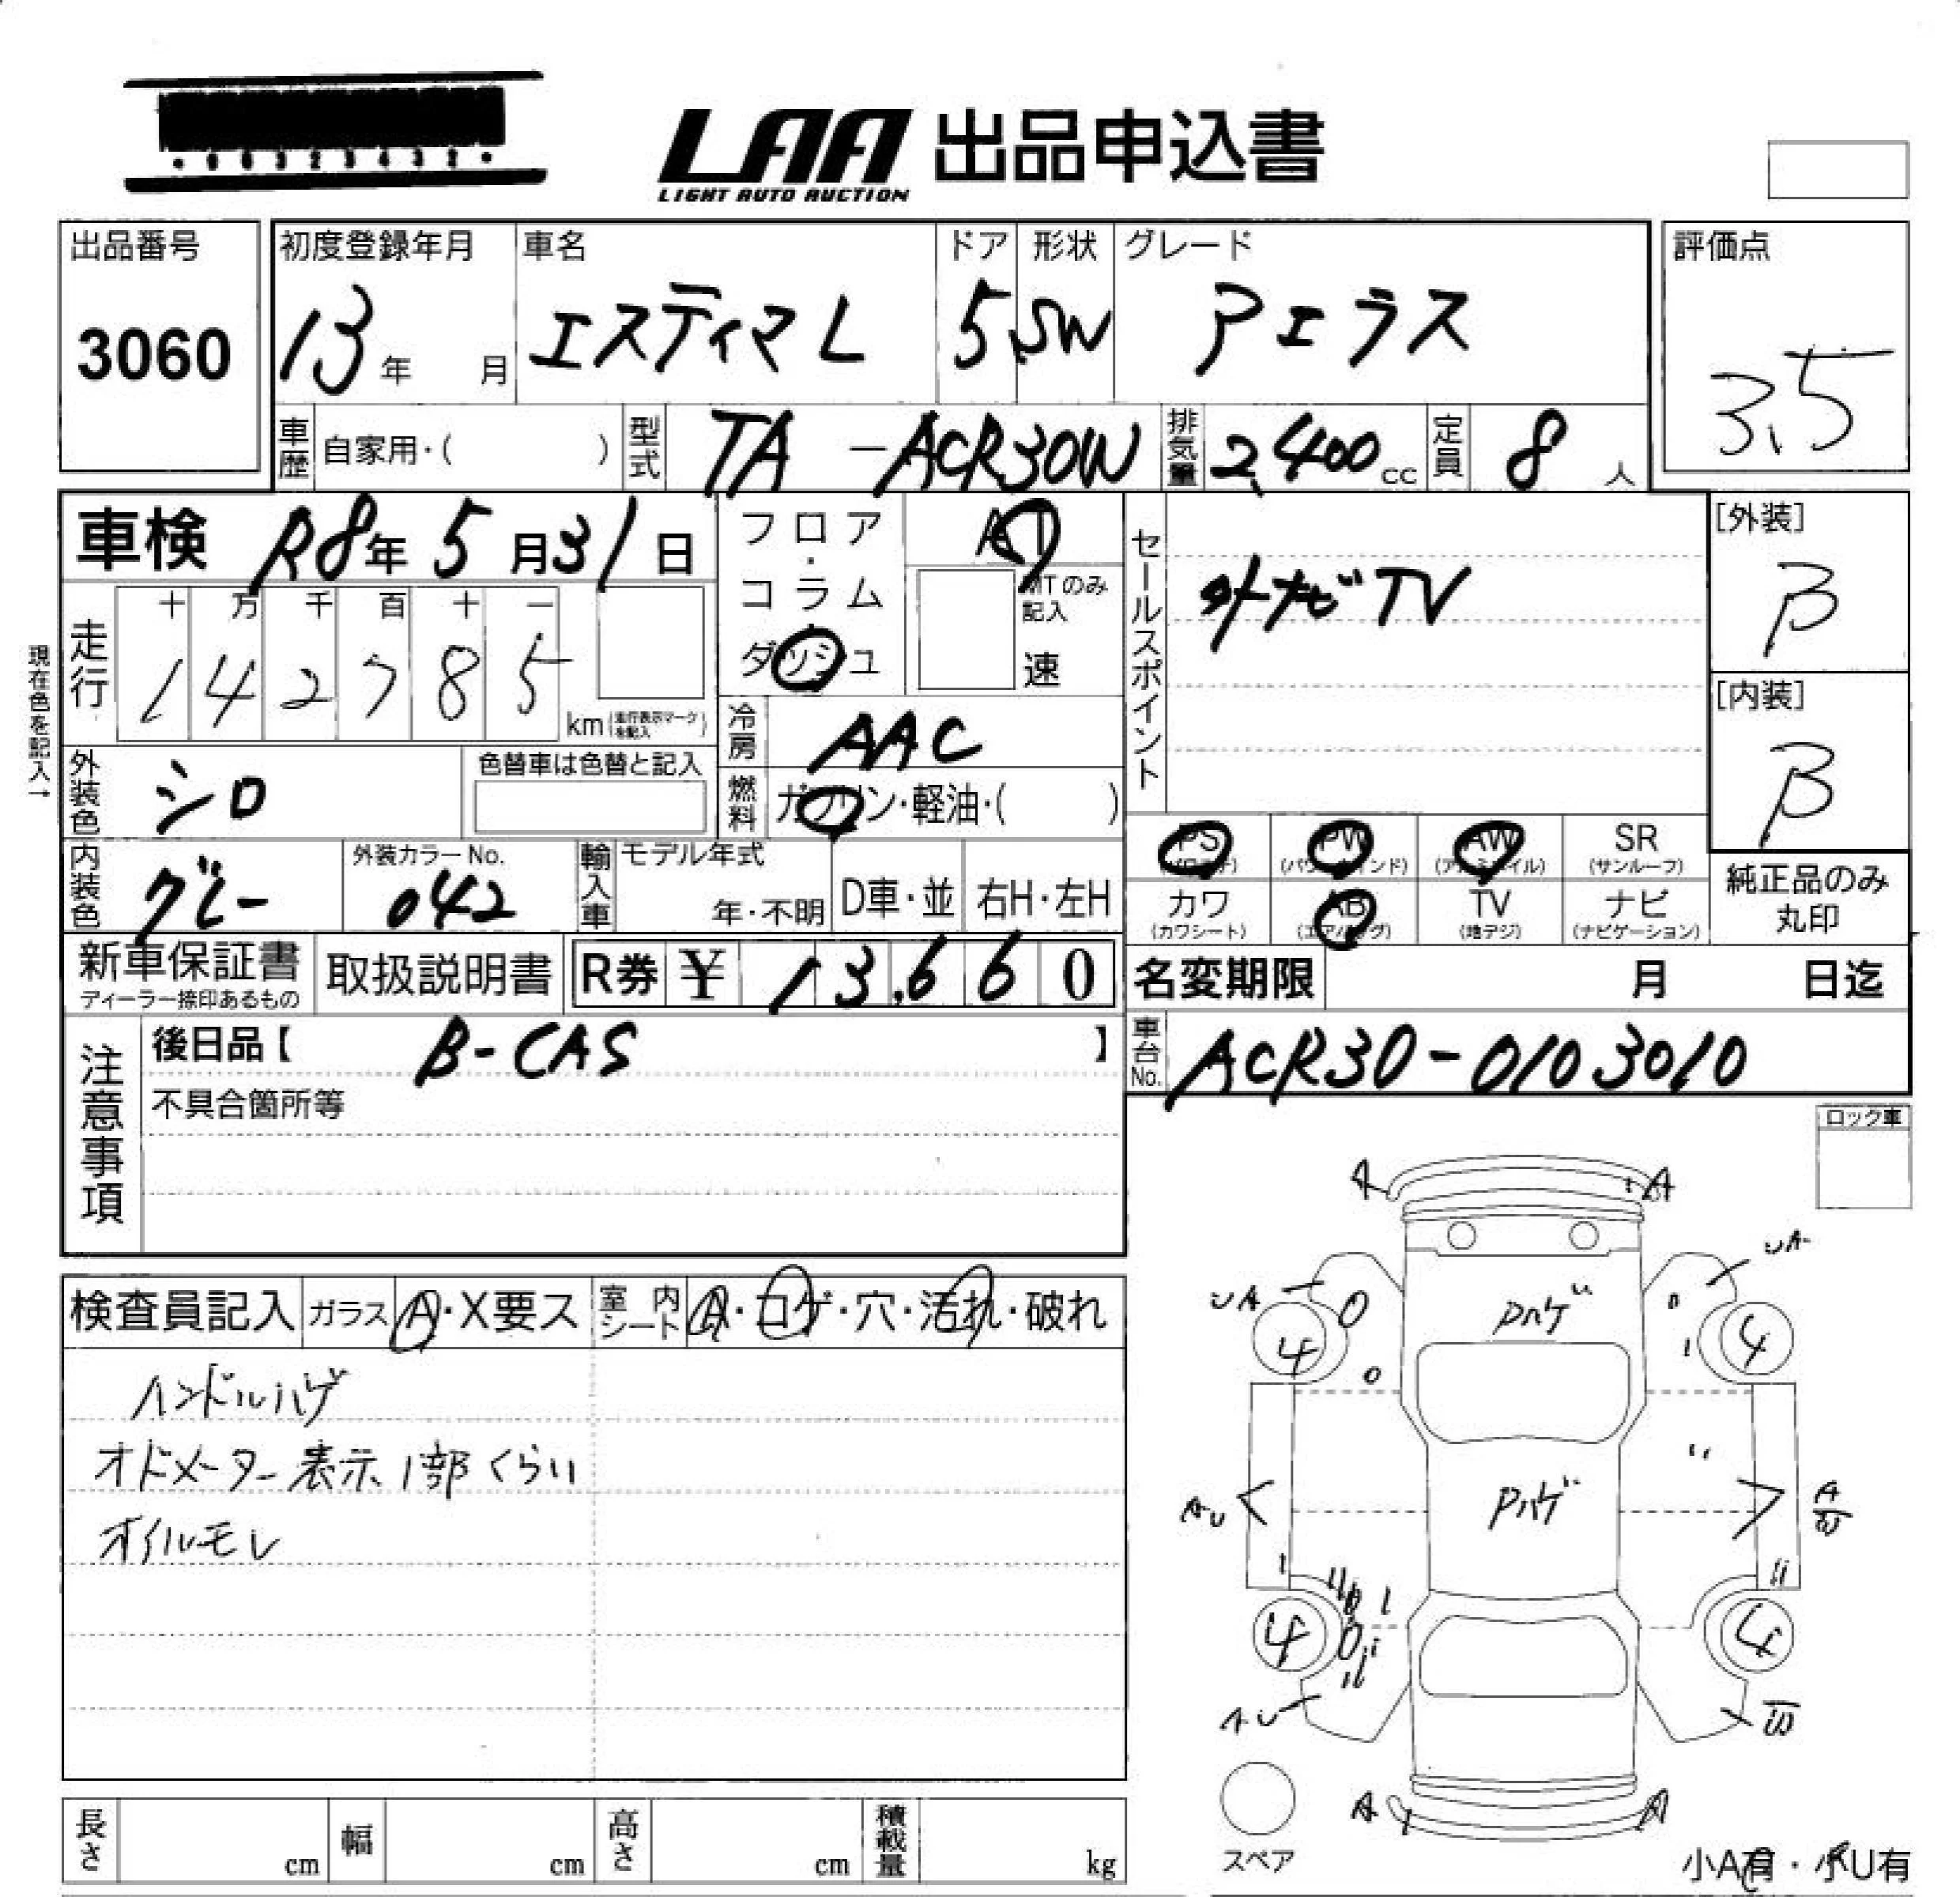 LAA 出品申込書
LIGHT AUTO AUCTION
出品番号
3060
初度登録年月
13年 月
車名
エスティマL
ドア
5
形状
SW
グレード
アエラス
評価点
3.5
車歴 自家用・( )
型式 TA-ACR30W
排気量 2,400cc
定員 8人
車検 R8年5月31日
走行
十 万 千 百 十 一
1 4 2 7 8 5
km (走行表示マークを記入)
現在色を記入→
フロア・コラム・ダッシュ
AT
MTのみ記入
速
冷房 AAC
燃料 ガソリン・軽油・( )
外装色 シロ
色替車は色替と記入
内装色 グレー
外装カラーNo.
042
輸入車
モデル年式
年・不明
D車・並
右H・左H
セールスポイント
外ナビTV
[外装]
B
[内装]
B
PS PW (パワーウインド) AW (アルミホイル) SR (サンルーフ)
カワ (カワシート) AB (エアバッグ) TV (地デジ) ナビ (ナビゲーション)
純正品のみ
丸印
新車保証書
ディーラー捺印あるもの
取扱説明書
R券 ¥ 13,660
名変期限 月 日迄
注意事項
後日品【 B-CAS 】
不具合箇所等
車台No. ACR30-0103010
ロック車
検査員記入
ガラス A・X要ス
室内シート A・コゲ・穴・汚れ・破れ
ハンドルハゲ
オドメーター表示1部くらい
オイルモレ
A A
UA UA
4 Pハゲ 4
Pハゲ
AU A
4 4
AU
A A
スペア
小A有・小U有
長さ cm
幅 cm
高さ cm
積載量 kg